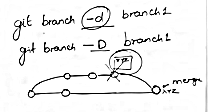 git branch -d branch1
git branch -D branch1
merge